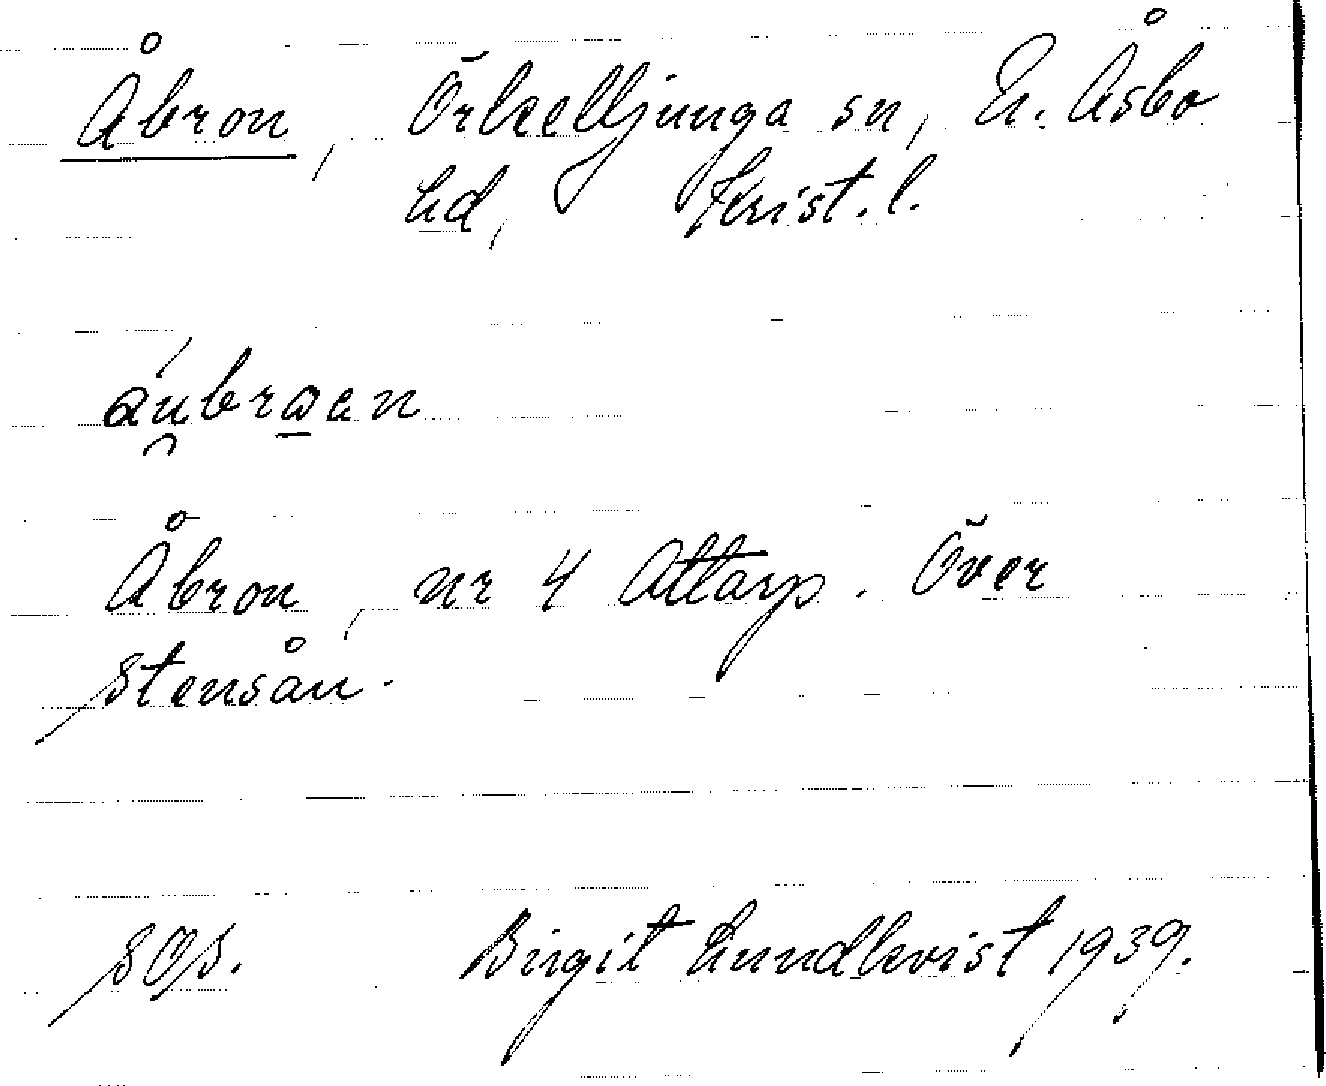 Åbron, Örkelljunga sn, N. Åsbo
hd, Krist. l.
Åbron, nr 4 Attarp. Över
Stensån.
SOS. Birgit Lundkvist 1939.